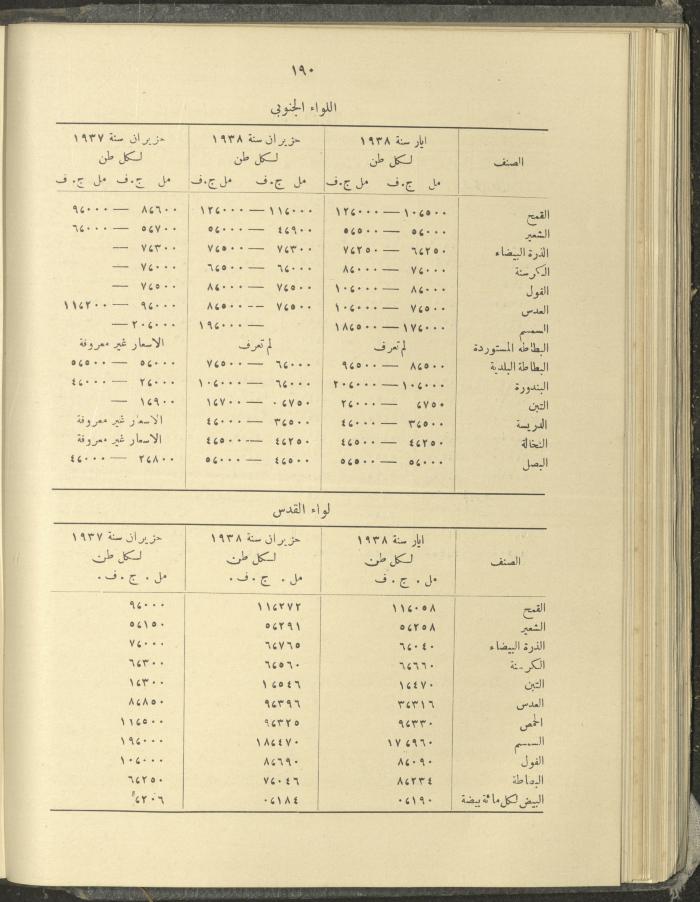 ١٩٠
اللواء الجنوبي
الصنف ايار سنة ١٩٣٨ حزيران سنة ١٩٣٨ حزيران سنة ١٩٣٧
لكل طن لكل طن لكل طن
مل ج.ف مل ج.ف مل ج.ف مل ج.ف مل ج.ف مل ج.ف
القمح ١٠،٥٠٠ — ١٢،٠٠٠ ١١،٠٠٠ — ١٢،٠٠٠ ٨،٦٠٠ — ٩،٠٠٠
الشعير ٥،٠٠٠ — ٥،٥٠٠ ٤،٩٠٠ — ٥،٠٠٠ ٥،٧٠٠ — ٦،٠٠٠
الذرة البيضاء ٦،٢٥٠ — ٧،٢٥٠ ٧،٣٠٠ — ٧،٥٠٠ ٧،٣٠٠ —
الكرسنة ٧،٠٠٠ — ٨،٠٠٠ ٦،٠٠٠ — ٦،٥٠٠ ٧،٠٠٠ —
الفول ٨،٠٠٠ — ١٠،٠٠٠ ٧،٥٠٠ — ٨،٠٠٠ ٧،٥٠٠ —
العدس ٧،٥٠٠ — ١٠،٠٠٠ ٧،٥٠٠ — ٨،٥٠٠ ٩،٠٠٠ — ١١،٢٠٠
السمسم ١٧،٠٠٠ — ١٨،٥٠٠ — ١٩،٠٠٠ ٢٠،٠٠٠ —
البطاطه المستوردة لم تعرف لم تعرف الاسعار غير معروفة
البطاطة البلدية ٨،٥٠٠ — ٩،٥٠٠ ٦،٠٠٠ — ٧،٥٠٠ ٥،٠٠٠ — ٥،٥٠٠
البندورة ١٠،٠٠٠ — ٢٠،٠٠٠ ٦،٠٠٠ — ١٠،٠٠٠ ٢،٠٠٠ — ٤،٠٠٠
التبن ،٧٥٠ — ٢،٠٠٠ ٠،٧٥٠ — ١،٧٠٠ ١،٩٠٠ —
الدريسة ٣،٥٠٠ — ٤،٠٠٠ ٣،٥٠٠ — ٤،٠٠٠ الاسعار غير معروفة
النخالة ٤،٢٥٠ — ٤،٥٠٠ ٤،٢٥٠ — ٤،٥٠٠ الاسعار غير معروفة
البصل ٥،٠٠٠ — ٥،٥٠٠ ٤،٥٠٠ — ٥،٠٠٠ ٢،٨٠٠ — ٤،٠٠٠
لواء القدس
الصنف ايار سنة ١٩٣٨ حزيران سنة ١٩٣٨ حزيران سنة ١٩٣٧
لكل طن لكل طن لكل طن
مل . ج . ف مل . ج . ف . مل . ج . ف .
القمح ١١،٠٥٨ ١١،٢٧٢ ٩،٠٠٠
الشعير ٥،٢٥٨ ٥،٢٩١ ٥،١٥٠
الذرة البيضاء ٦،٠٤٠ ٦،٧٦٥ ٧،٠٠٠
الكرسنة ٦،٦٦٠ ٦،٥٦٠ ٦،٣٠٠
التبن ١،٤٧٠ ١،٥٤٦ ١،٣٠٠
العدس ٣،٣١٦ ٩،٣٩٦ ٨،٨٥٠
الحمص ٩،٣٣٠ ٩،٣٢٥ ١١،٥٠٠
السمسم ١٧،٩٦٠ ١٨،٤٧٠ ١٩،٠٠٠
الفول ٨،٠٩٠ ٨،٦٩٠ ١٠،٠٠٠
البطاطة ٨،٢٣٤ ٧،٠٤٦ ٦،٢٥٠
البيض لكل مائة بيضة ٠،١٩٠ ٠،١٨٤ ،٢٠٦